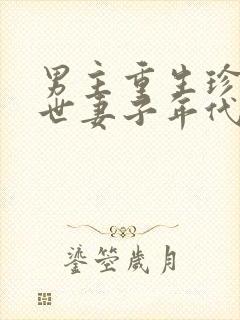 男主重生珍
世妻子年代
鎏箜歲月